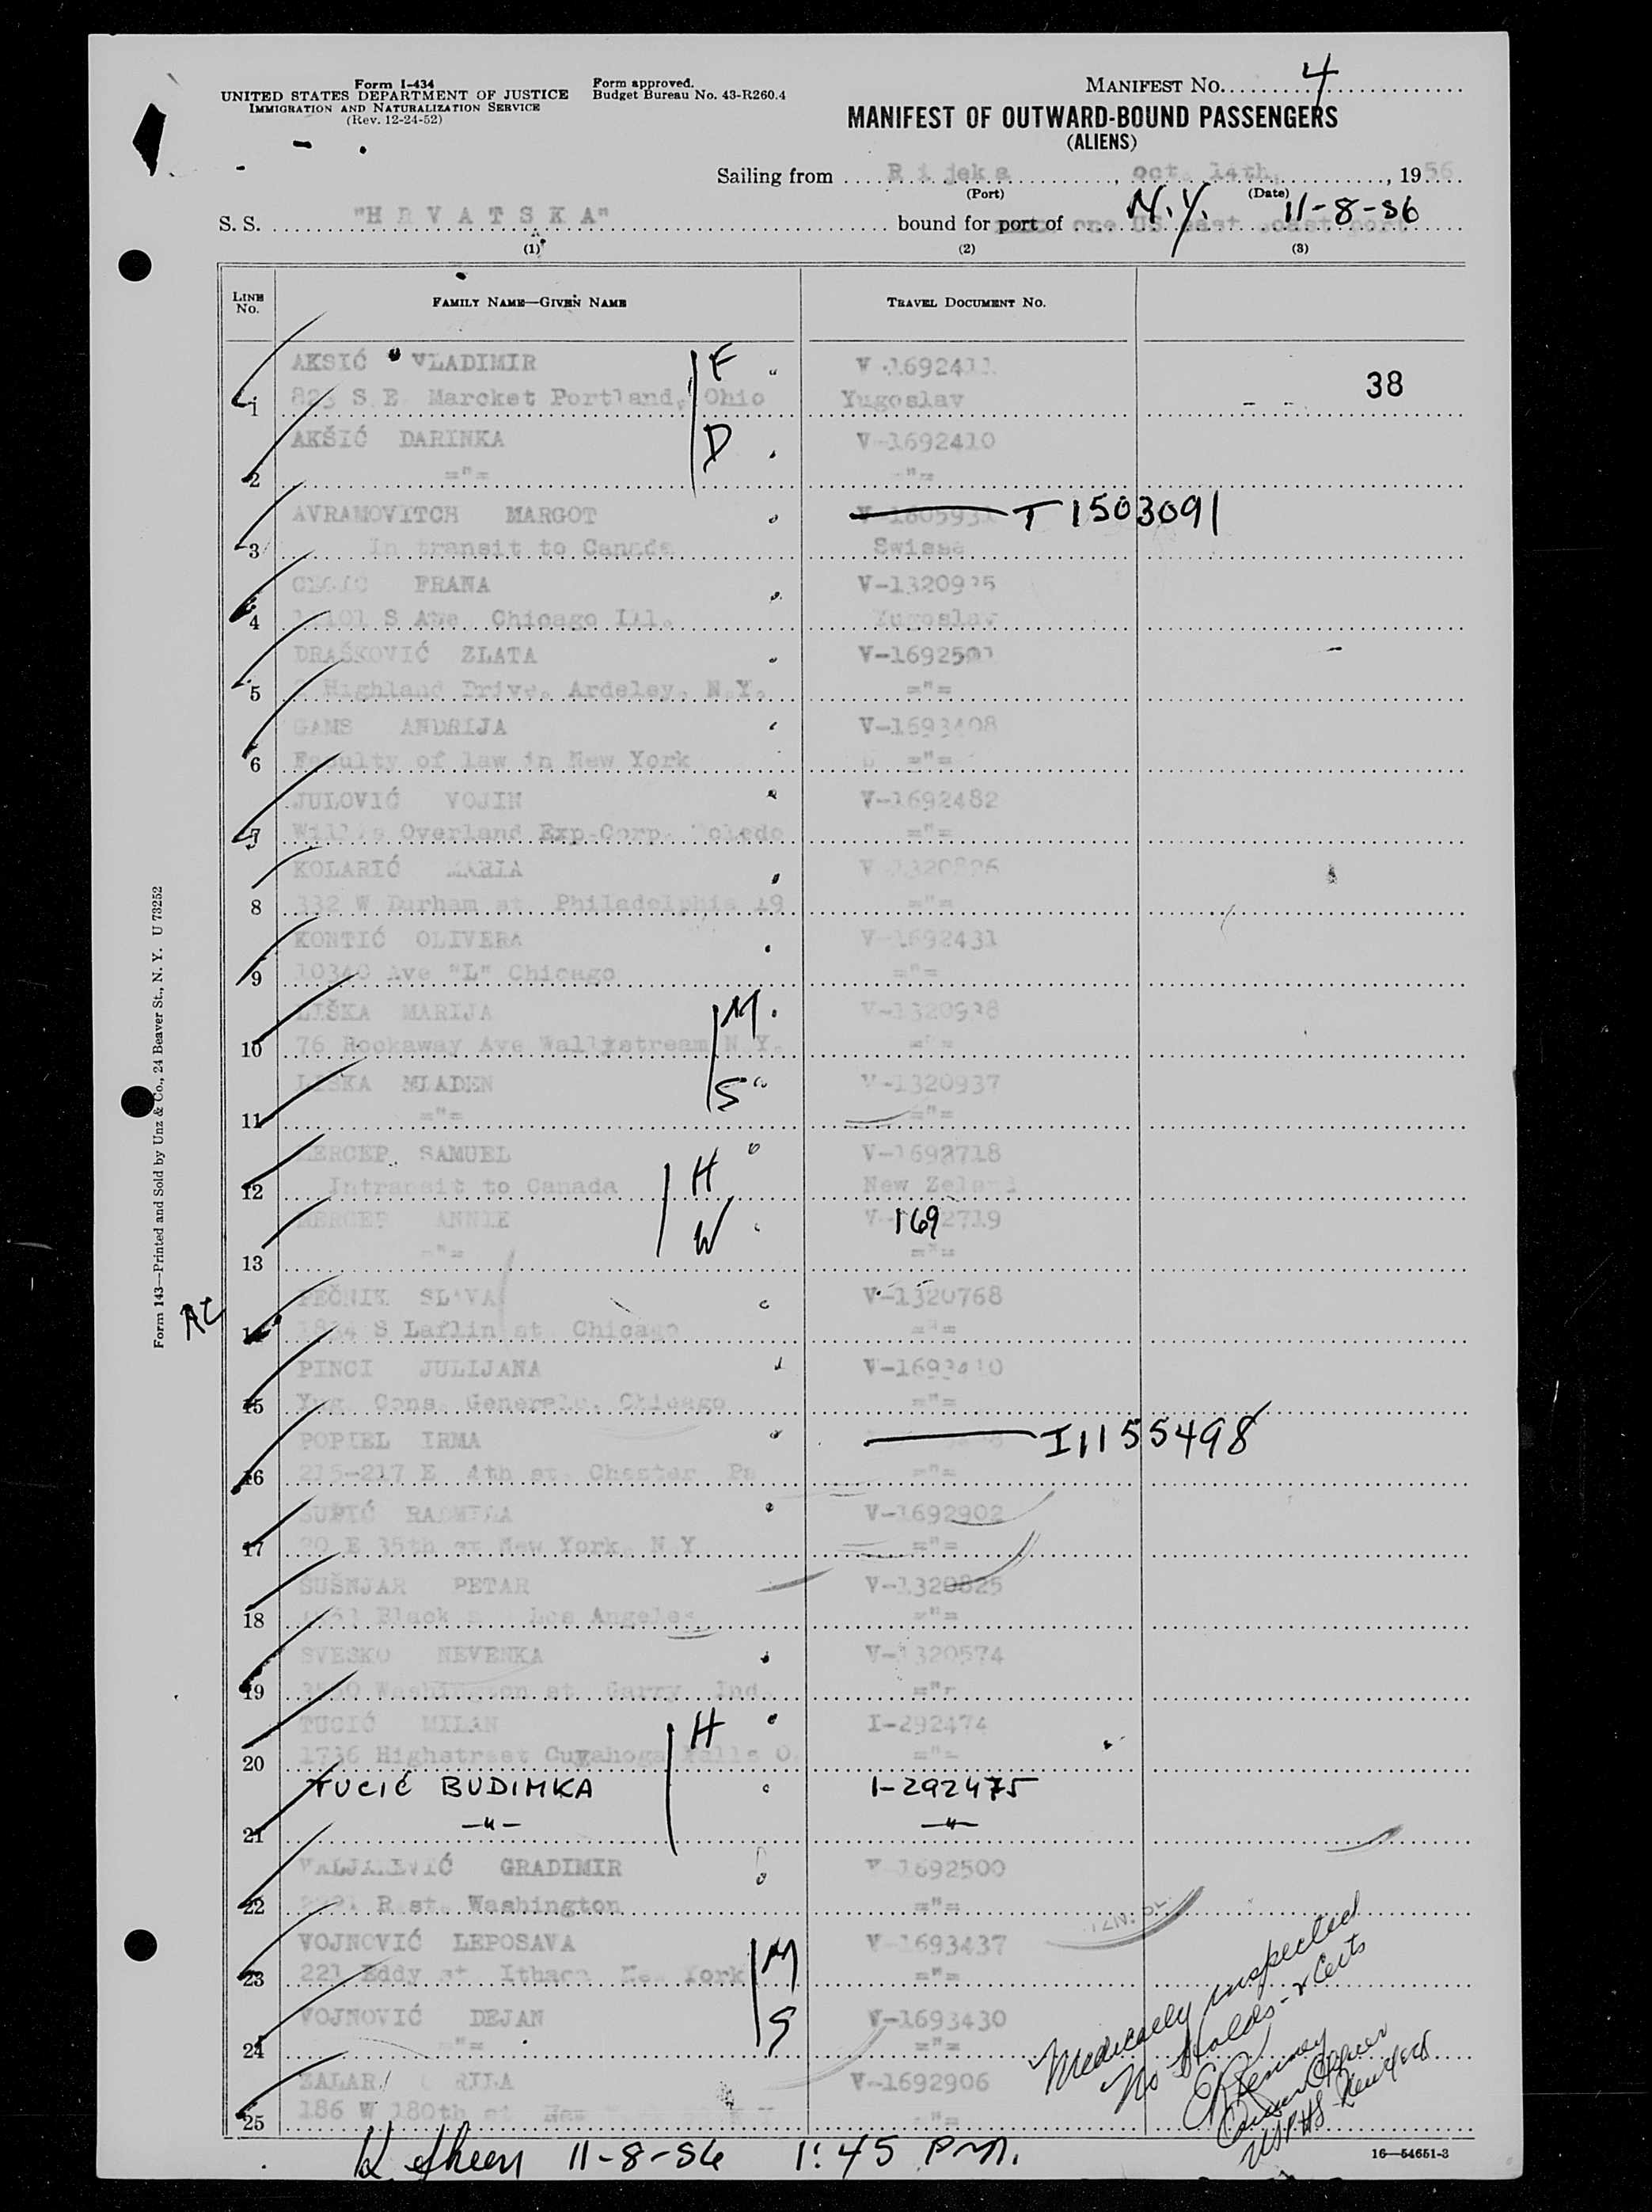 Form I-434
UNITED STATES DEPARTMENT OF JUSTICE
IMMIGRATION AND NATURALIZATION SERVICE
(Rev. 12-24-52)
Form approved.
Budget Bureau No. 43-R260.4
MANIFEST No. 4
MANIFEST OF OUTWARD-BOUND PASSENGERS
(ALIENS)
Sailing from Rijeka, oct. 14th, 1956
(Port) (Date)
S. S. "HRVATSKA" bound for port of one US east coast port
N.Y. 11-8-56
(1) (2) (3)
LINE No. FAMILY NAME—GIVEN NAME TRAVEL DOCUMENT No.
AKSIĆ VLADIMIR F V-1692411
1 823 S.E. Marcket Portland, Ohio Yugoslav 38
AKŠIĆ DARINKA D V-1692410
2 ="= ="=
AVRAMOVITCH MARGOT T 1503091
3 In transit to Canada Swisse
FRANA V-1320935
4 S Ave. Chicago Ill. Yugoslav
DRAŠKOVIĆ ZLATA V-1692501
5 Highland Drive. Ardeley. N.Y. ="=
GAMS ANDRIJA V-1693408
6 Faculty of law in New York ="=
JULOVIĆ VOJIN V-1692482
7 Willis Overland Exp.Corp. Toledo ="=
KOLARIĆ MARIA
8 332 W Durham st. Philadelphia 19 ="=
KONTIĆ OLIVERA V-1692431
9 10340 Ave "L" Chicago ="=
LIŠKA MARIJA M V-1320938
10 76 Rockaway Ave Wallystream N.Y. ="=
LIŠKA MLADEN S V-1320937
11 ="= ="=
MERCEP SAMUEL H V-1692718
12 Intransit to Canada New Zeland
MERCEP ANNIE W V-1692719
13 ="= ="=
PEČNIK SLAVA V-1320768
AC
14 1834 S Laflin st. Chicago ="=
PINCI JULIJANA V-1693410
15 Yug. Cons. Generale. Chicago ="=
POPIEL IRMA I1155498
16 215-217 E 4th st. Chester Pa ="=
SUPIĆ RADMILA V-1692902
17 20 E 35th st New York. N.Y ="=
SUŠNJAR PETAR V-1320825
18 Los Angeles ="=
SVESKO NEVENKA V-1320574
19 Washington st. Garry Ind. ="=
TUCIĆ MILAN H I-292474
20 1736 Highstreet Cuyahoga Falls O. ="=
TUCIĆ BUDIMKA I-292475
21 -"- -"-
GRADIMIR V-1692500
22 R.st. Washington ="=
VOJNOVIĆ LEPOSAVA M V-1693437
23 221 Eddy st. Ithaca New York ="=
VOJNOVIĆ DEJAN S V-1693430
24 ="= ="=
ZALAR V-1692906
25 186 W 180th st. ="=
Medically inspected
No Holds
USPHS New York
11-8-56 1:45 PM.
16—54651-3
Form 143—Printed and Sold by Unz & Co., 24 Beaver St., N. Y. U 73252